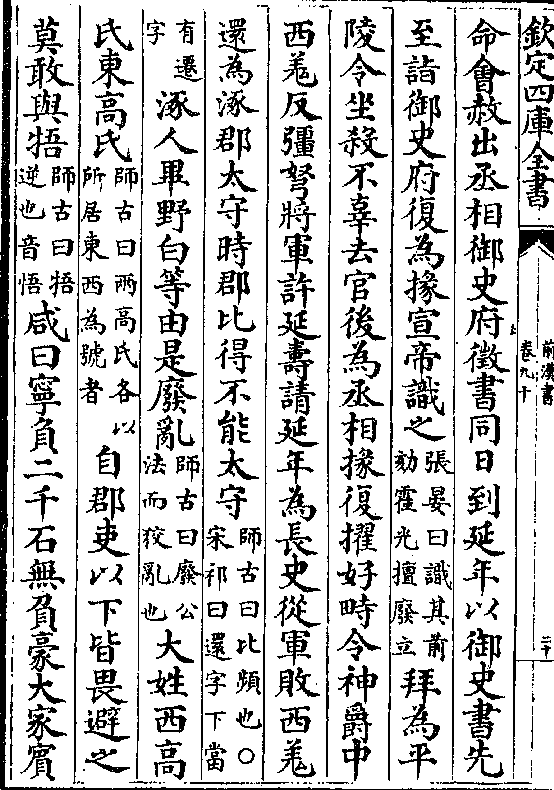 欽定四庫全書
前漢書
卷九十
二十
命會赦出丞相御史府徵書同日到延年以御史書先
至詣御史府復為掾宣帝識之張晏曰識其前劾霍光擅廢立拜為平
陵令坐殺不辜去官後為丞相掾復擢好畤令神爵中
西羗反彊弩將軍許延壽請延年為長史從軍敗西羗
還為涿郡太守時郡比得不能太守師古曰比頻也○宋祁曰還字下當
有遷字涿人畢野白等由是廢亂師古曰廢公法而狡亂也大姓西高
氏東高氏師古曰兩高氏各以所居東西為號者自郡吏以下皆畏避之
莫敢與牾師古曰牾逆也音悟咸曰寧負二千石無負豪大家賓